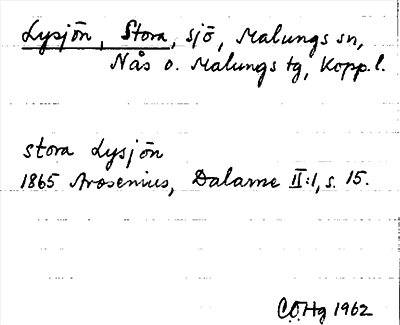 Lysjön, Stora, sjö, Malungs sn,
Nås o. Malungs tg, Kopp.l.
stora Lysjön
1865 Arosenius, Dalarne II:1, s. 15.
COHg 1962